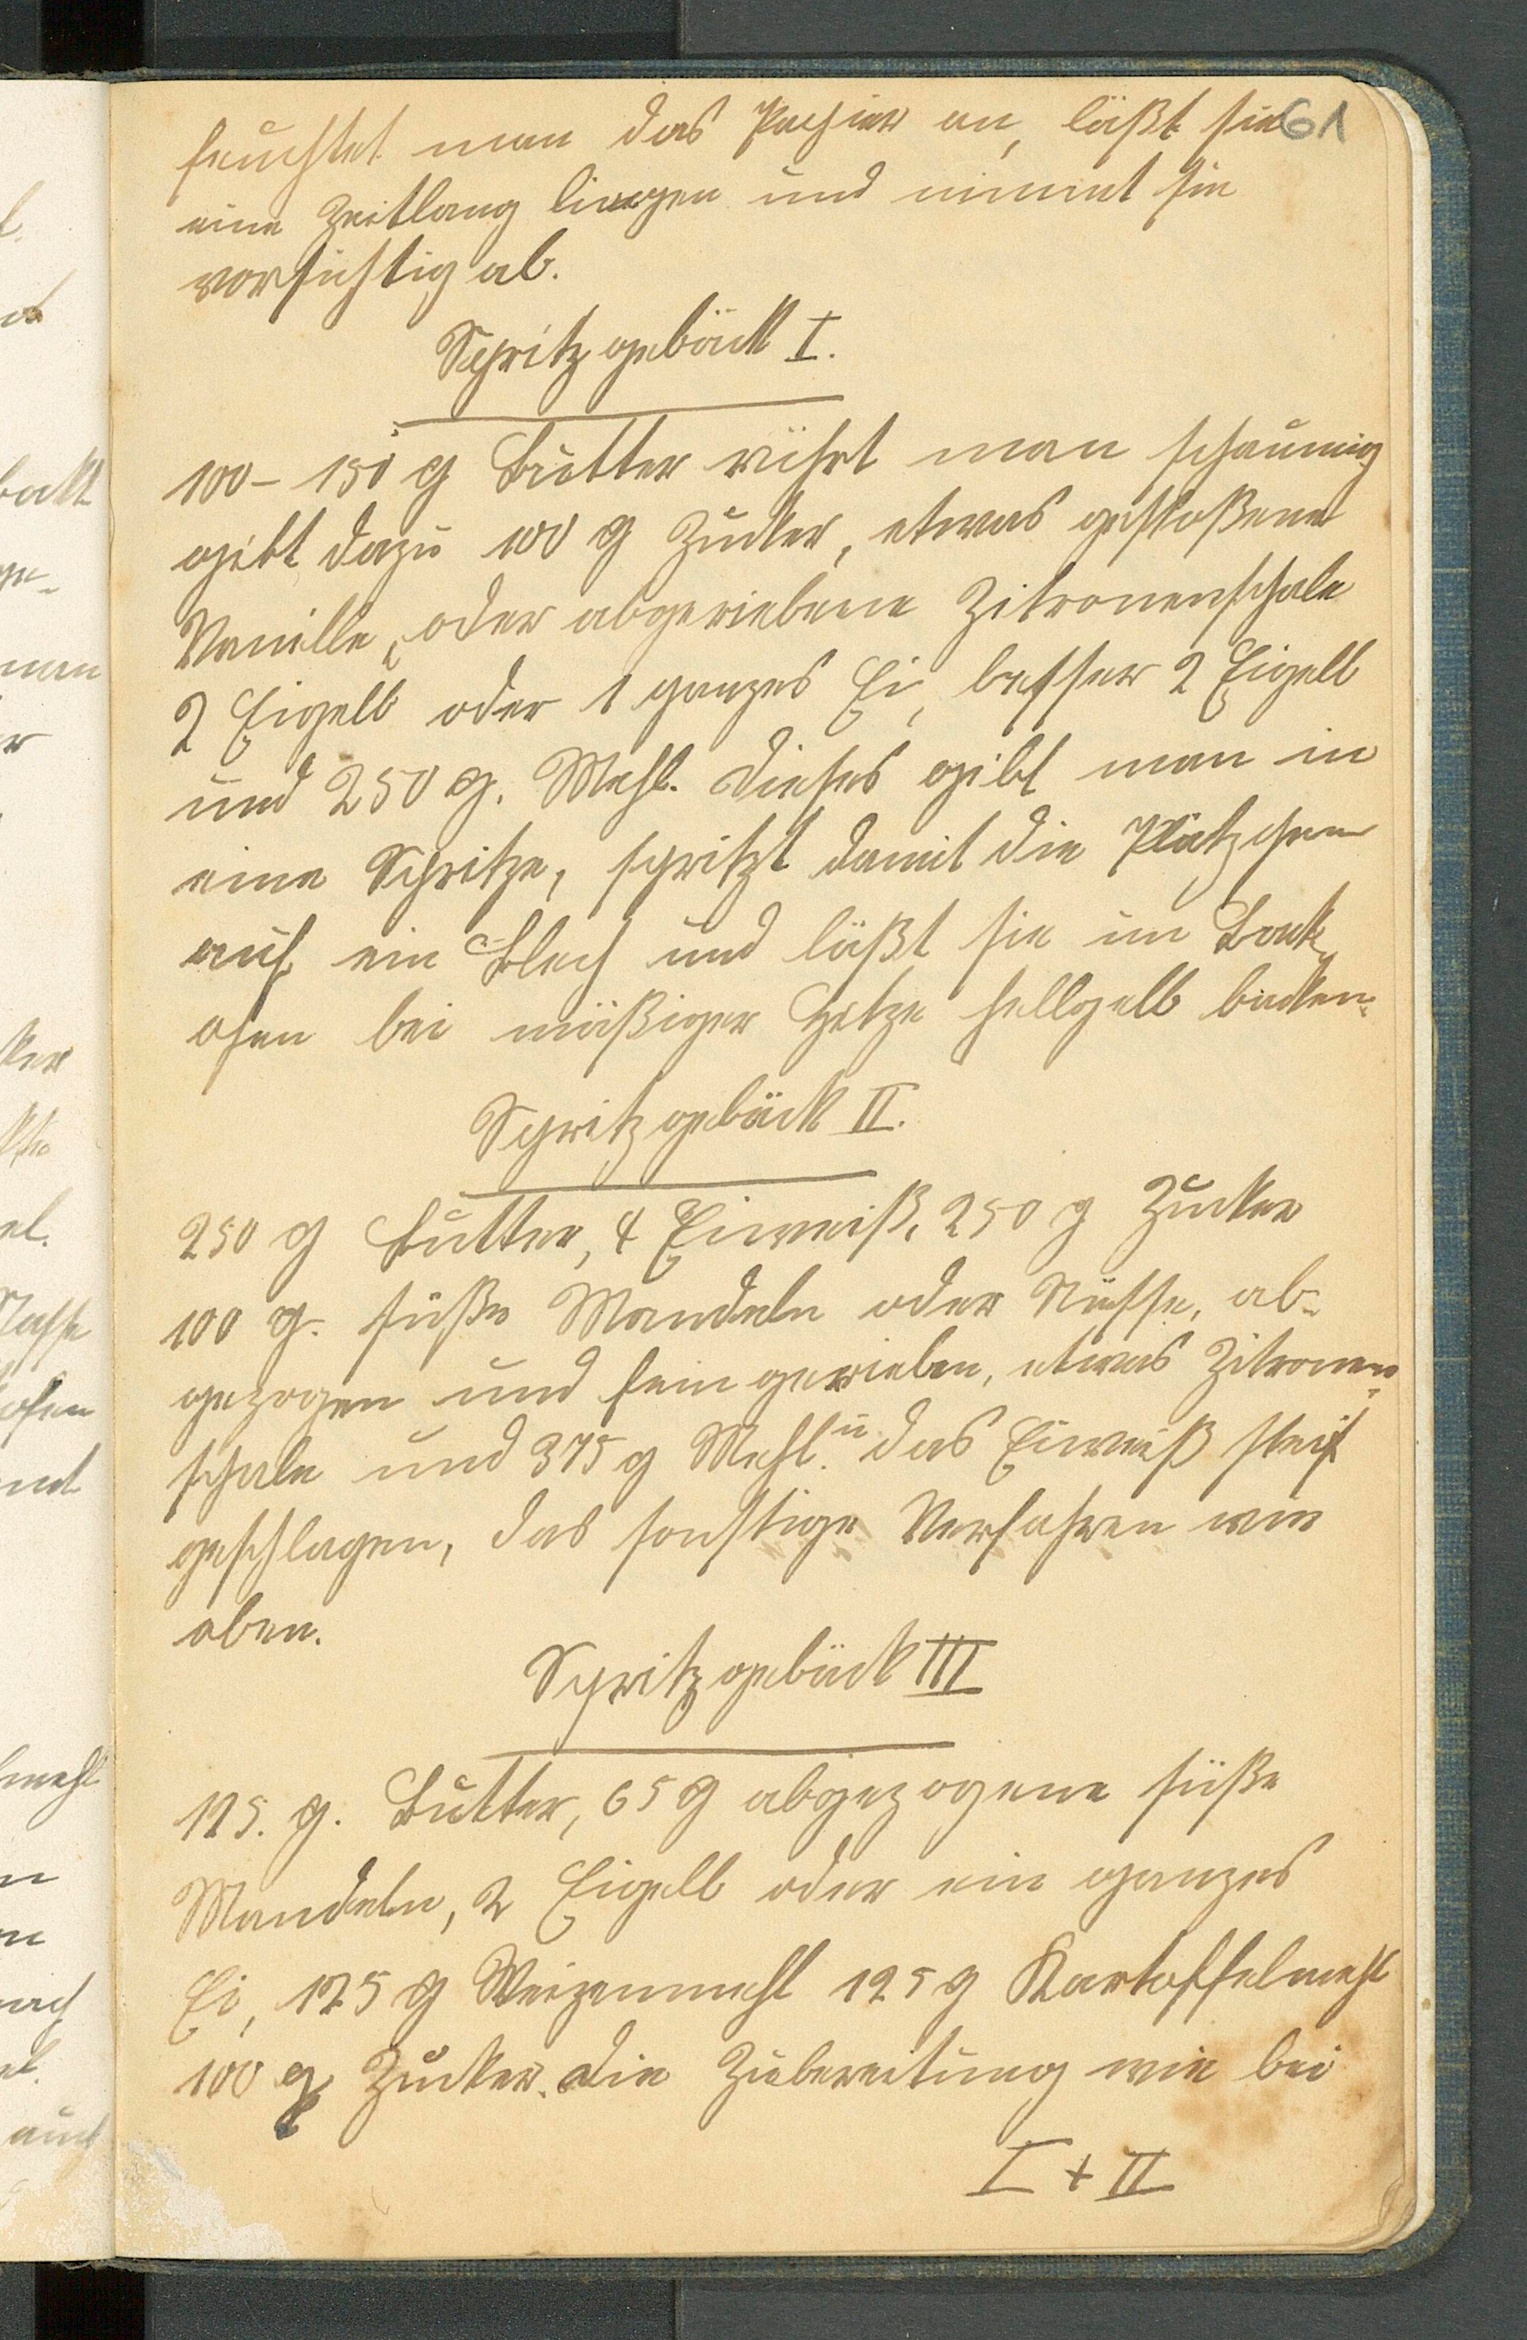 61
feuchtet man das Papier an, läßt sie
eine Zeitlang liegen und nimmt sie
vorsichtig ab.
Spritzgebäck I.
100 - 150 g Butter rührt man schaumig
gibt dazu 100 g Zucker, etwas gestoßene
Vanille, oder abgeriebene Zitronenschale
2 Eigelb oder 1 ganzes Ei, besser 2 Eigelb
und 250 g. Mehl. Dieses gibt man in
eine Spritze, spritzt damit die Plätzchen
auf ein Blech und läßt sie im Back
ofen bei mäßiger Hitze hellgelb backen.
Spritzgebäck II.
250 g Butter, 4 Eiweiß, 250 g Zucker
100 g. süße Mandeln oder Nüsse, ab-
gezogen und fein gerieben, etwas Zitronen-
schale und 375 g Mehl. u das Eiweiß steif
geschlagen, das sonstige Verfahren wie
oben.
Spritzgebäck III
125. g. Butter, 65 g abgezogene süße
Mandeln, 2 Eigelb oder ein ganzes
Ei, 125 g Weizenmehl 125 g Kartoffelmehl
100 g Zucker. Die Zubereitung wie bei
I + II